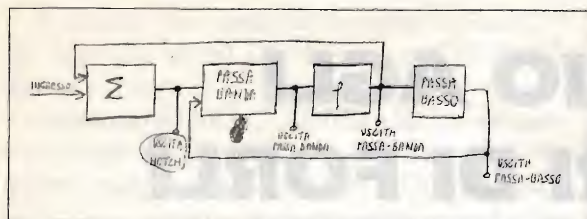 INGRESSO
Σ
PASSA
BANDA
∫
PASSA
BASSO
USCITA
NOTCH
USCITA
PASSA BANDA
USCITA
PASSA-BANDA
USCITA
PASSA-BASSO